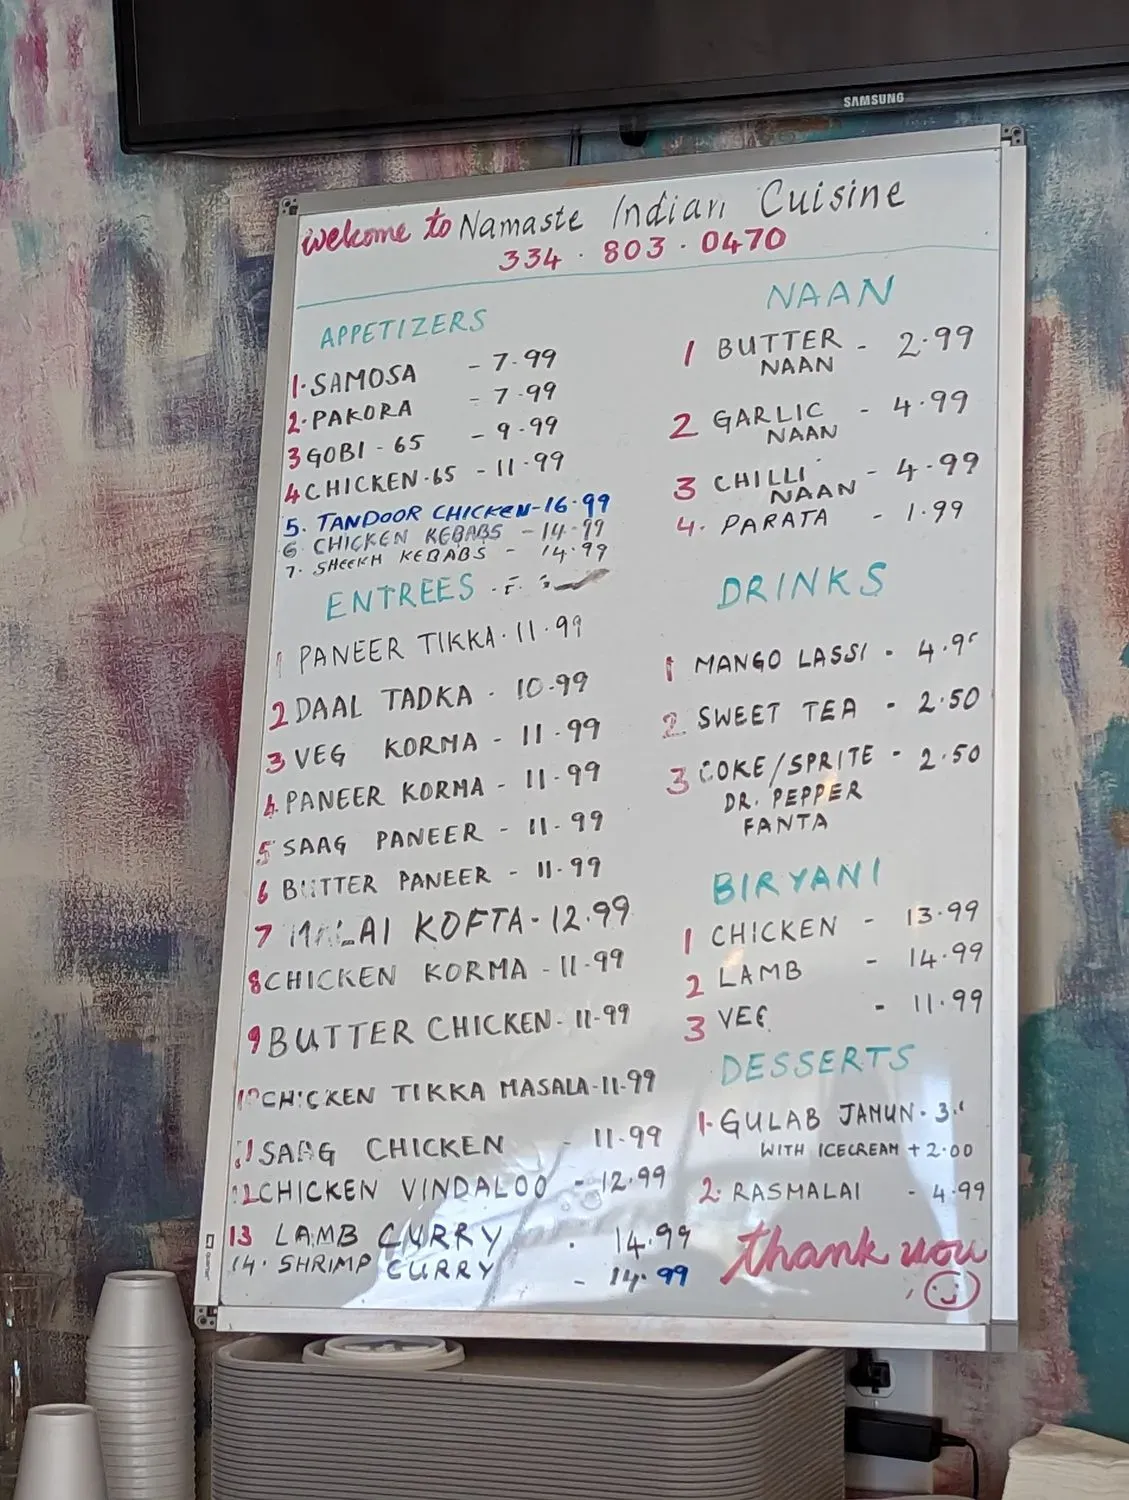 SAMSUNG
welcome to Namaste Indian Cuisine
334 · 803 · 0470
APPETIZERS
1. SAMOSA - 7.99
2. PAKORA - 7.99
3 GOBI - 65 - 9.99
4 CHICKEN.65 - 11.99
5. TANDOOR CHICKEN - 16.99
6 CHICKEN KEBABS - 14.99
7. SHEEKH KEBABS - 14.99
ENTREES
1 PANEER TIKKA. 11.99
2 DAAL TADKA - 10.99
3 VEG KORMA - 11.99
4. PANEER KORMA - 11.99
5 SAAG PANEER - 11.99
6 BUTTER PANEER - 11.99
7 MALAI KOFTA - 12.99
8 CHICKEN KORMA - 11.99
9 BUTTER CHICKEN - 11.99
10 CHICKEN TIKKA MASALA - 11.99
11 SAAG CHICKEN - 11.99
12 CHICKEN VINDALOO - 12.99
13 LAMB CURRY . 14.99
14. SHRIMP CURRY - 14.99
NAAN
1 BUTTER - 2.99
NAAN
2 GARLIC - 4.99
NAAN
3 CHILLI - 4.99
NAAN
4. PARATA - 1.99
DRINKS
1 MANGO LASSI -
2 SWEET TEA - 2.50
3 COKE/SPRITE - 2.50
DR. PEPPER
FANTA
BIRYANI
1 CHICKEN - 13.99
2 LAMB - 14.99
3 VEG - 11.99
DESSERTS
1. GULAB JAMUN -
WITH ICECREAM + 2.00
2. RASMALAI - 4.99
thank you